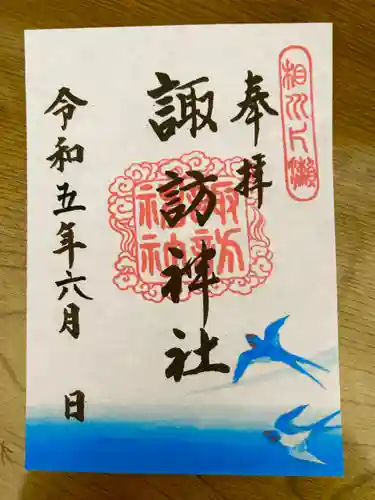 相州片瀬
奉拝
諏訪神社
諏訪神社
令和五年六月 日